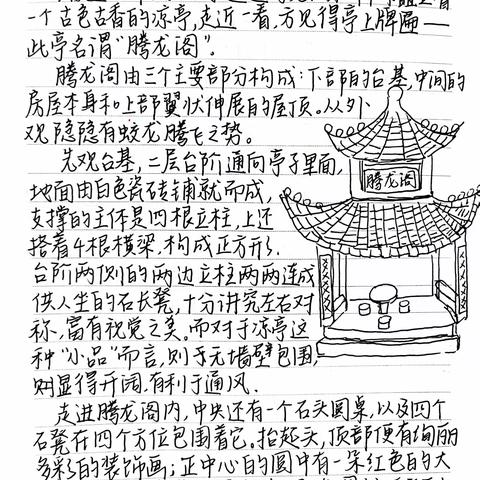 一个古色古香的凉亭,走近一看,方见得亭上牌匾——
此亭名谓"腾龙阁"。
腾龙阁由三个主要部分构成:下部的台基,中间的
房屋本身和上部翼状伸展的屋顶。从外
观,隐隐有蛟龙腾飞之势。
先观台基,二层台阶通向亭子里面,
地面由白色瓷砖铺就而成,
支撑的主体是四根立柱,上还
搭着4根横梁,构成正方形.
台阶两侧的两边立柱两两连成
供人坐的石长凳,十分讲究左右对
称,富有视觉之美。而对于凉亭这
种"小品"而言,则于无墙壁包围,
则显得开阔,有利于通风.
走进腾龙阁内,中央还有一个石头圆桌,以及四个
石凳在四个方位包围着它。抬起头,顶部便有绚丽
多彩的装饰画;正中心的圆中有一朵红色的大
腾龙阁